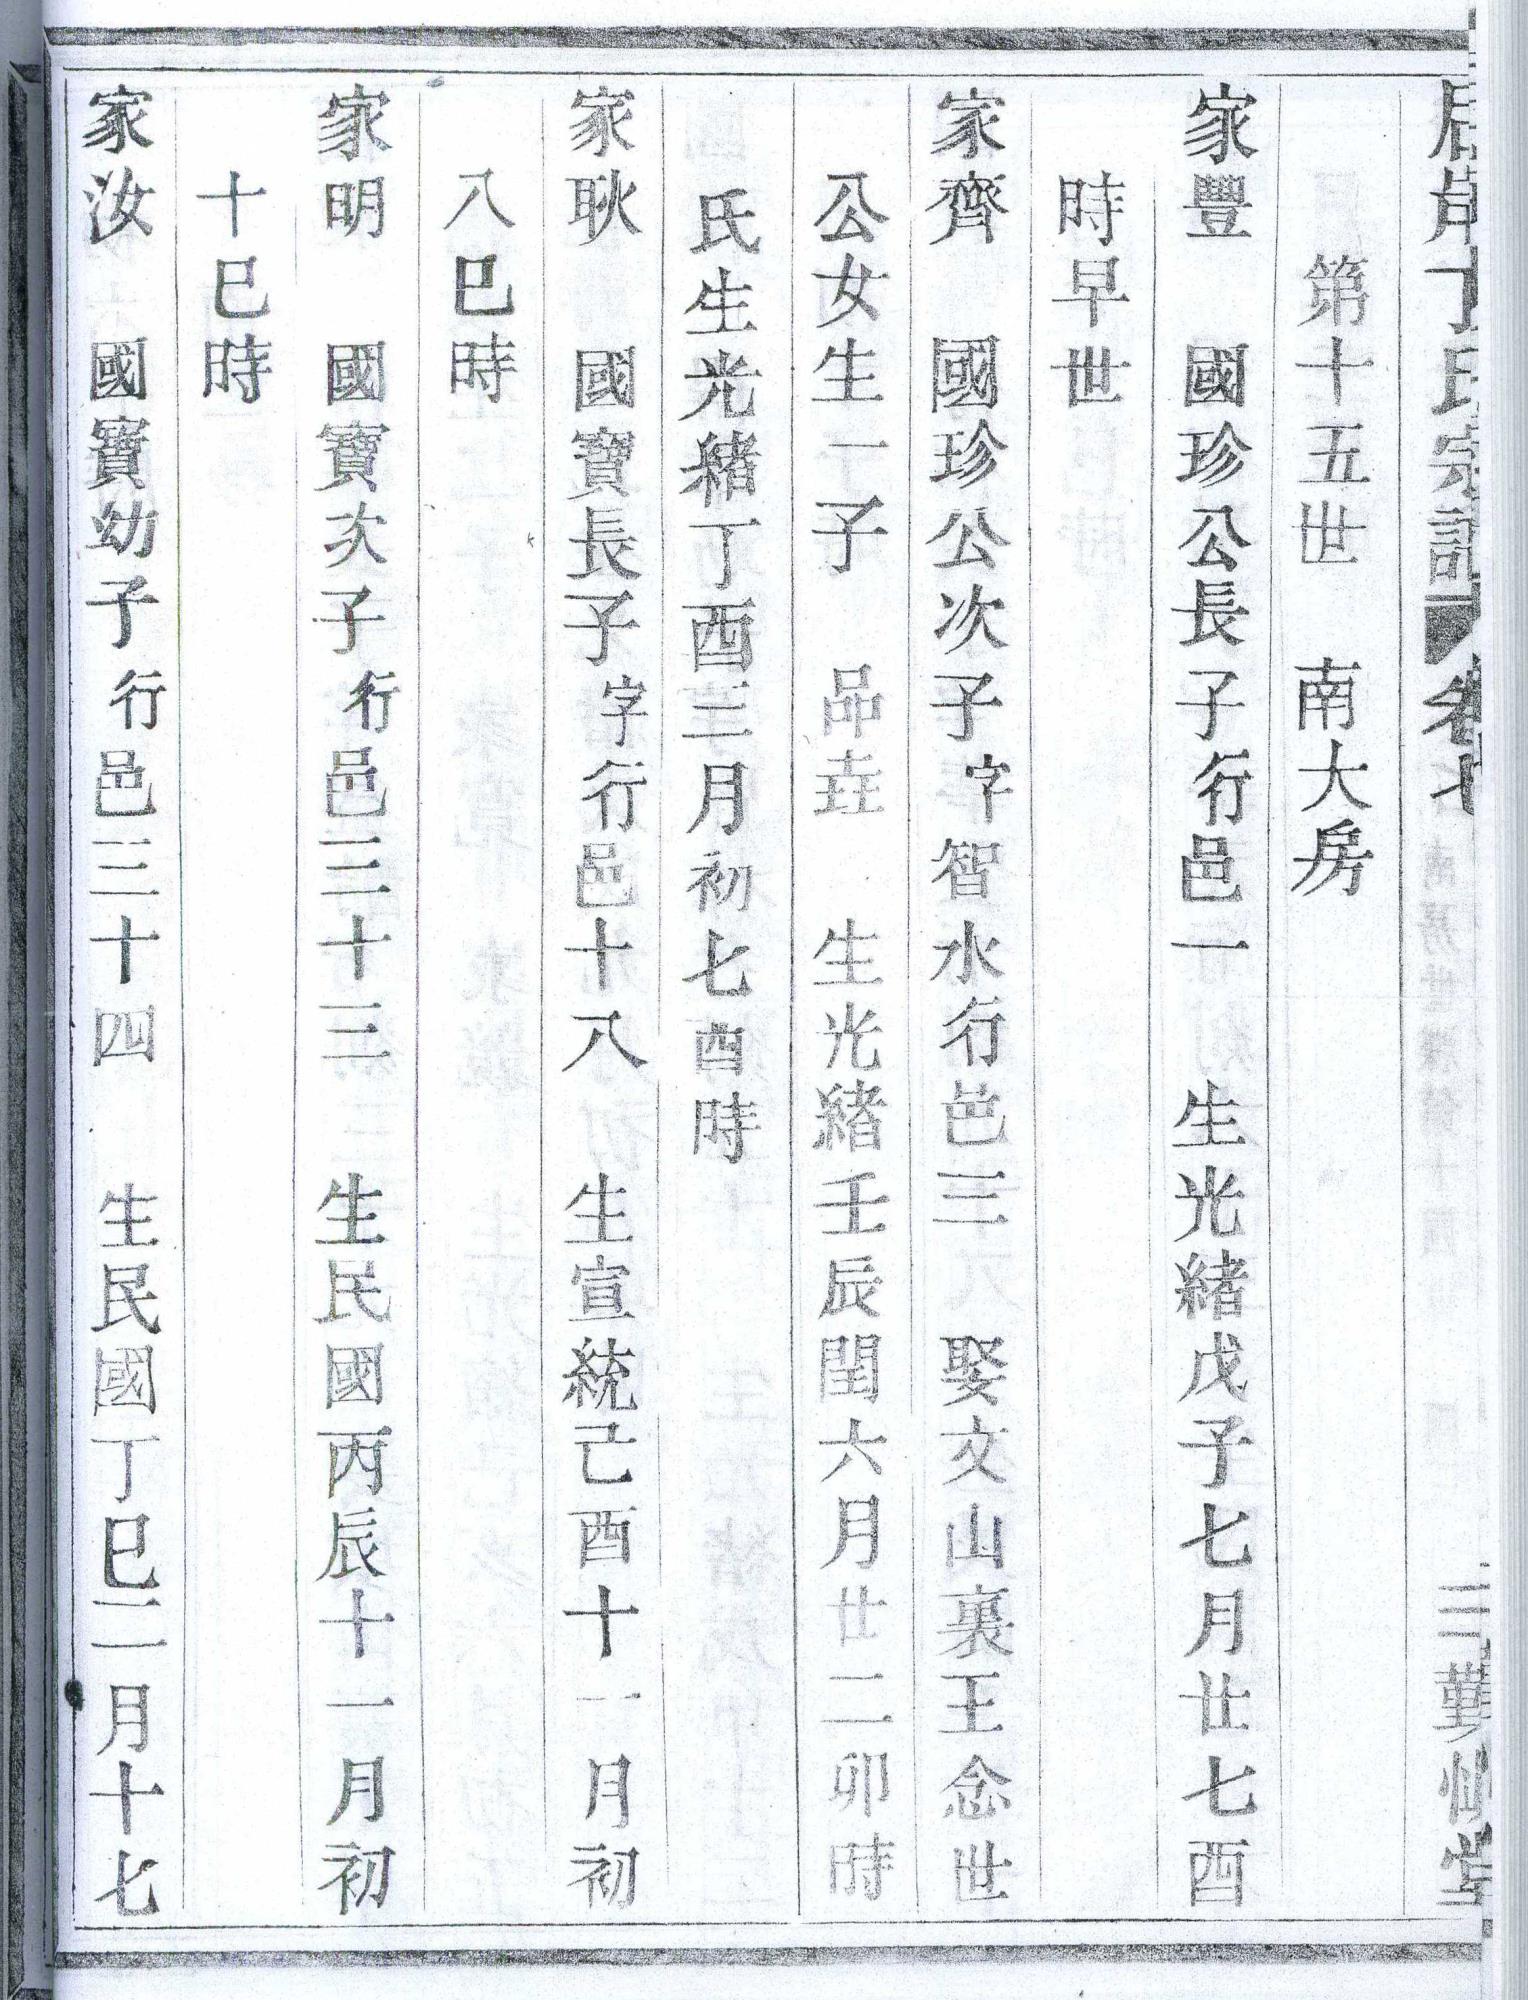 丁氏宗譜 卷七 三 堂
第十五世 南大房
家豐 國珍公長子行邑一 生光緒戊子七月廿七酉
時早世
家齊 國珍公次子字智水行邑三 娶文山裏王念世
公女生一子 品垚 生光緒壬辰閏六月廿二卯時
氏生光緒丁酉三月初七酉時
家耿 國寶長子字行邑十八 生宣統己酉十一月初
八巳時
家明 國寶次子行邑三十三 生民國丙辰十一月初
十巳時
家汝 國寶幼子行邑三十四 生民國丁巳二月十七